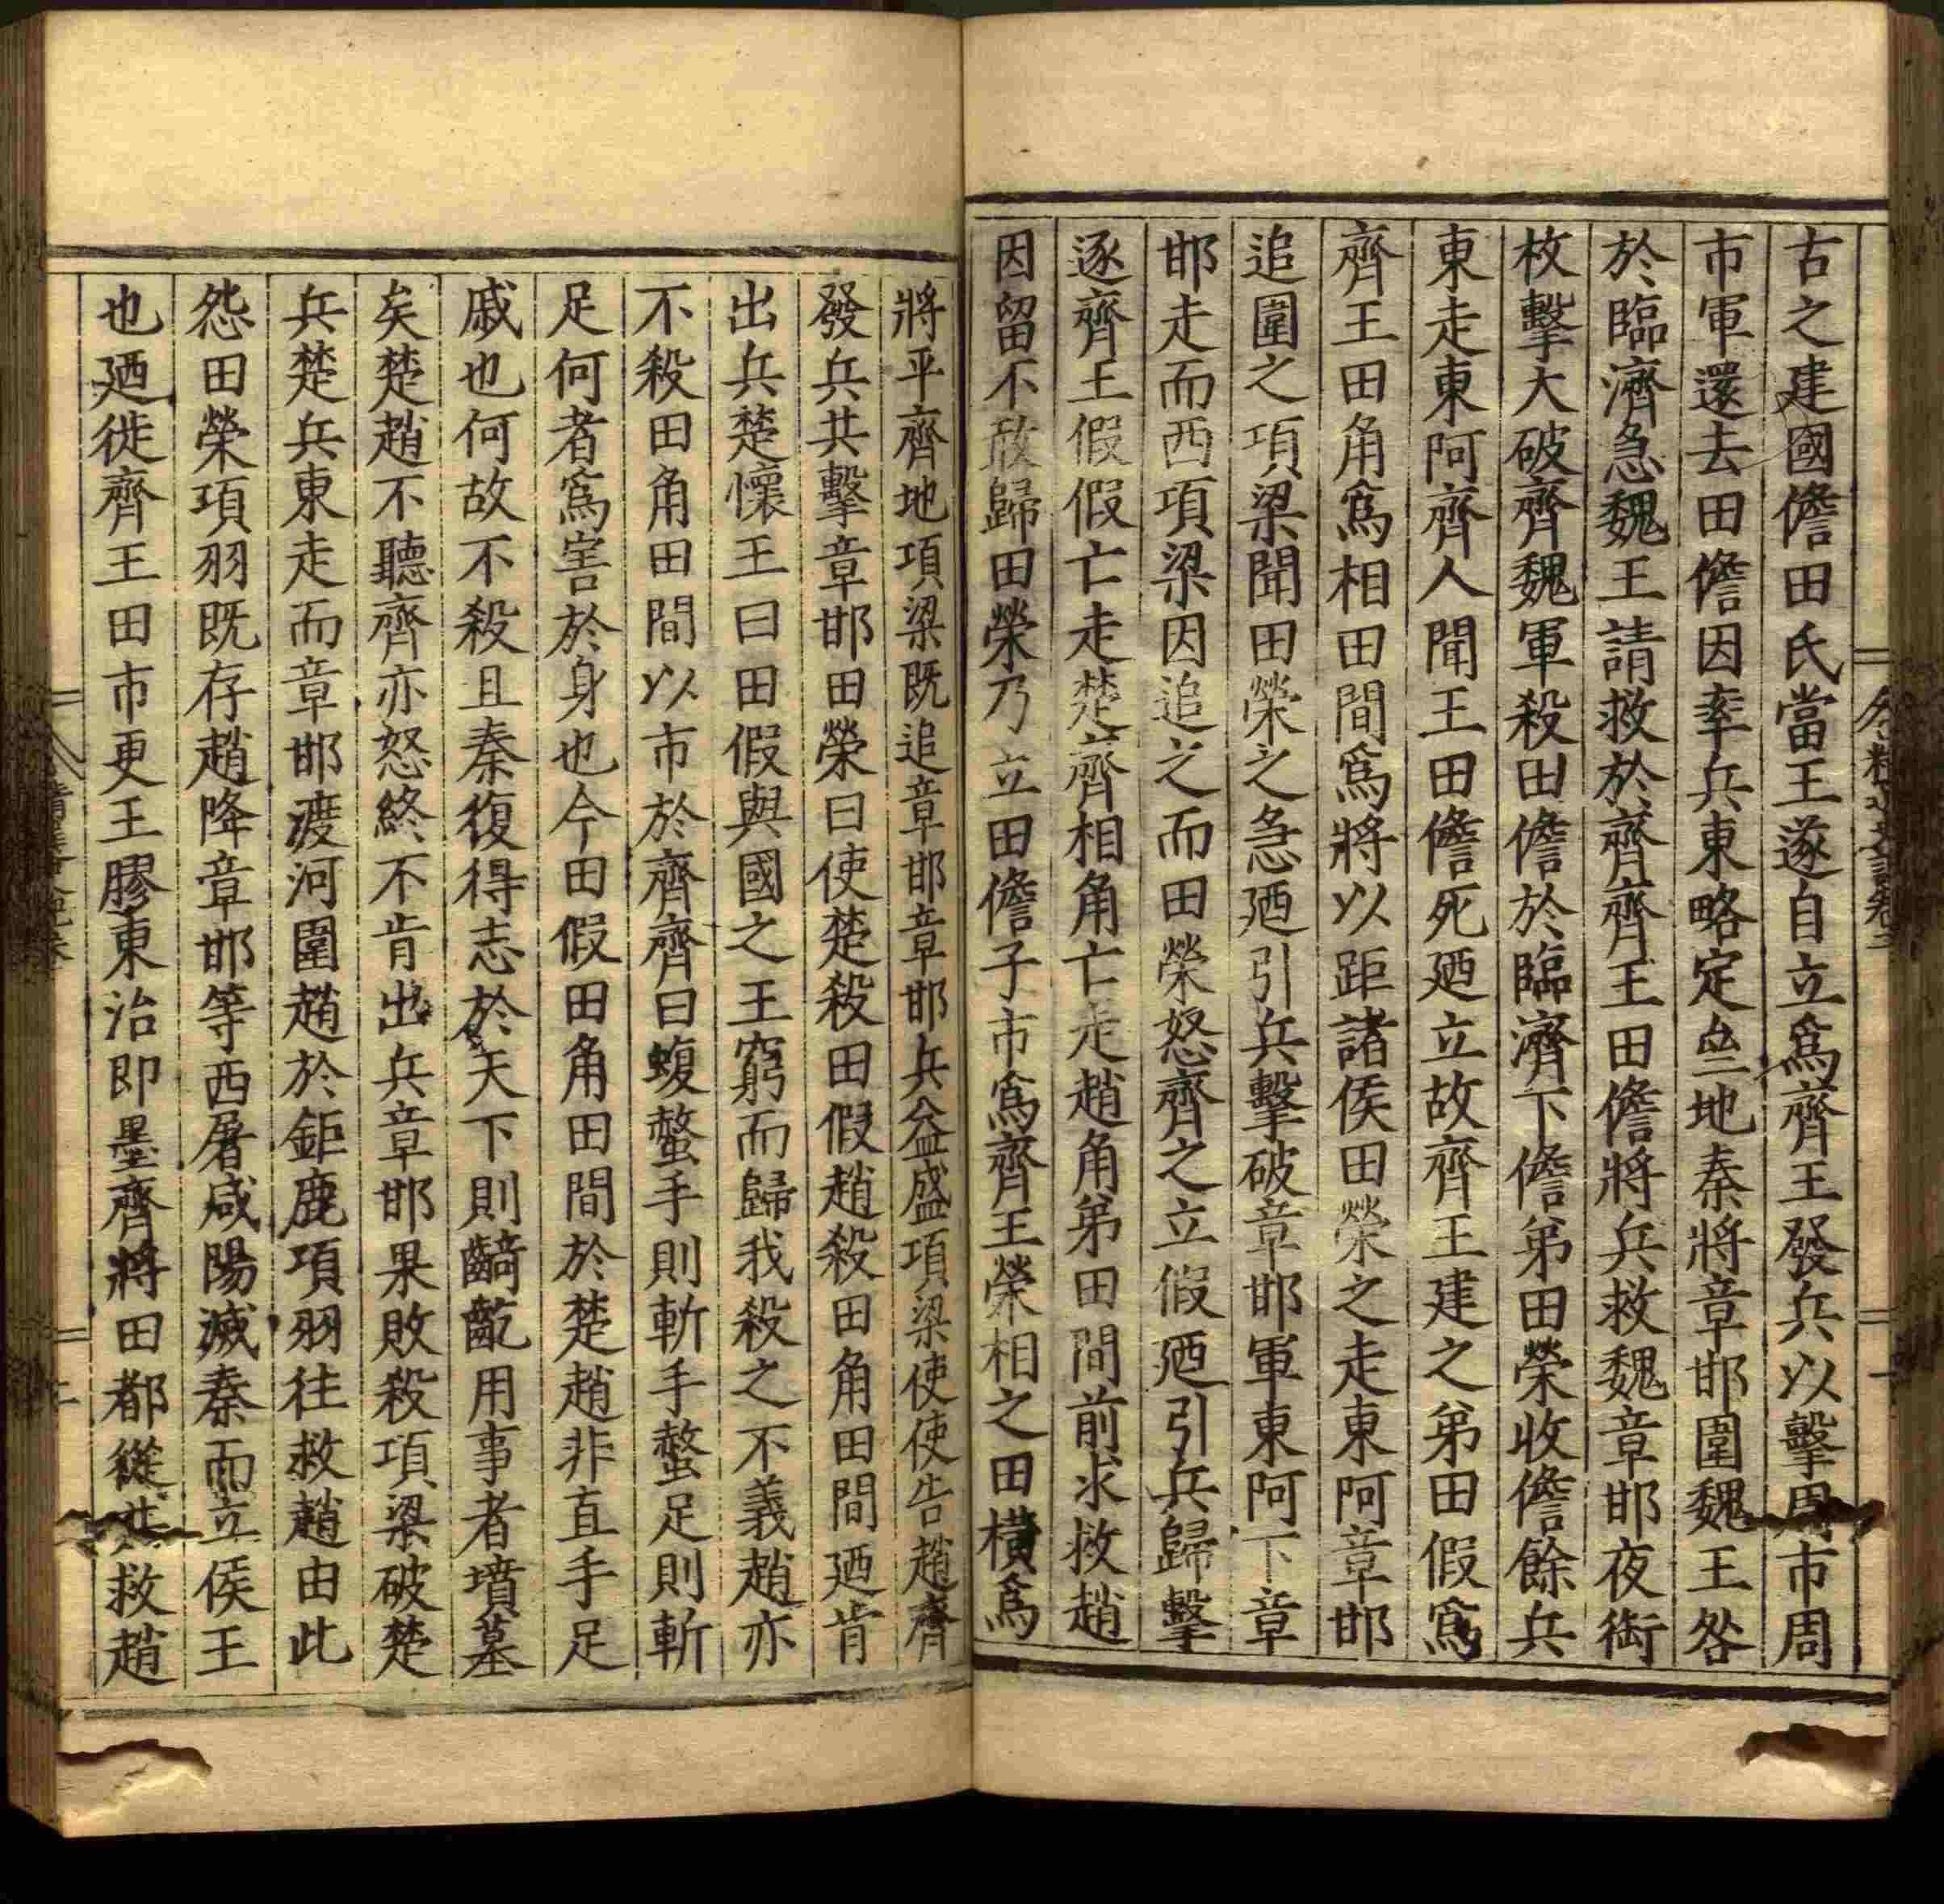 古之建國儋田氏當王遂自立爲齊王發兵以擊周市周
市軍還去田儋因率兵東略定𠫵地秦將章邯圍魏王咎
於臨濟急魏王請救於齊齊王田儋將兵救魏章邯夜銜
枚擊大破齊魏軍殺田儋於臨濟下儋弟田榮收儋餘兵
東走東阿齊人聞王田儋死廼立故齊王建之弟田假爲
齊王田角爲相田間爲將以距諸侯田榮之走東阿章邯
追圍之項梁聞田榮之急廼引兵擊破章邯軍東阿下章
邯走而西項梁因追之而田榮怒齊之立假廼引兵歸擊
逐齊王假假亡走楚齊相角亡走趙角弟田間前求救趙
因留不敢歸田榮乃立田儋子市爲齊王榮相之田橫爲
將平齊地項梁既追章邯章邯兵益盛項梁使使告趙齊
發兵共擊章邯田榮曰使楚殺田假趙殺田角田間廼肯
出兵楚懷王曰田假與國之王窮而歸我殺之不義趙亦
不殺田角田間以市於齊齊曰蝮螫手則斬手螫足則斬
足何者爲害於身也今田假田角田間於楚趙非直手足
戚也何故不殺且秦復得志於天下則齮齕用事者墳墓
矣楚趙不聽齊亦怒終不肯出兵章邯果敗殺項梁破楚
兵楚兵東走而章邯渡河圍趙於鉅鹿項羽往救趙由此
怨田榮項羽既存趙降章邯等西屠咸陽滅秦而立侯王
也廼徙齊王田市更王膠東治即墨齊將田都從共救趙